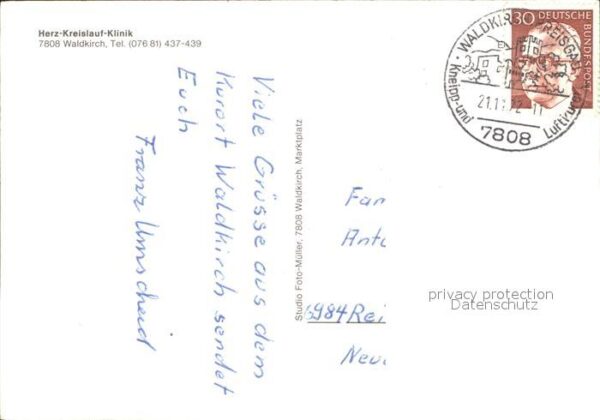 Herz-Kreislauf-Klinik
7808 Waldkirch, Tel. (0 76 81) 437-439
Viele Grüsse aus dem
Kurort Waldkirch sendet
Euch
Franz Umscheid
Studio Foto-Müller, 7808 Waldkirch, Marktplatz
30 DEUTSCHE
BUNDESPOST
WALDKIRCH BREISGAU
Kneipp-und Luftkurort
21.11.72
7808
Fam
Anto
6984 Rei
Neu
privacy protection
Datenschutz